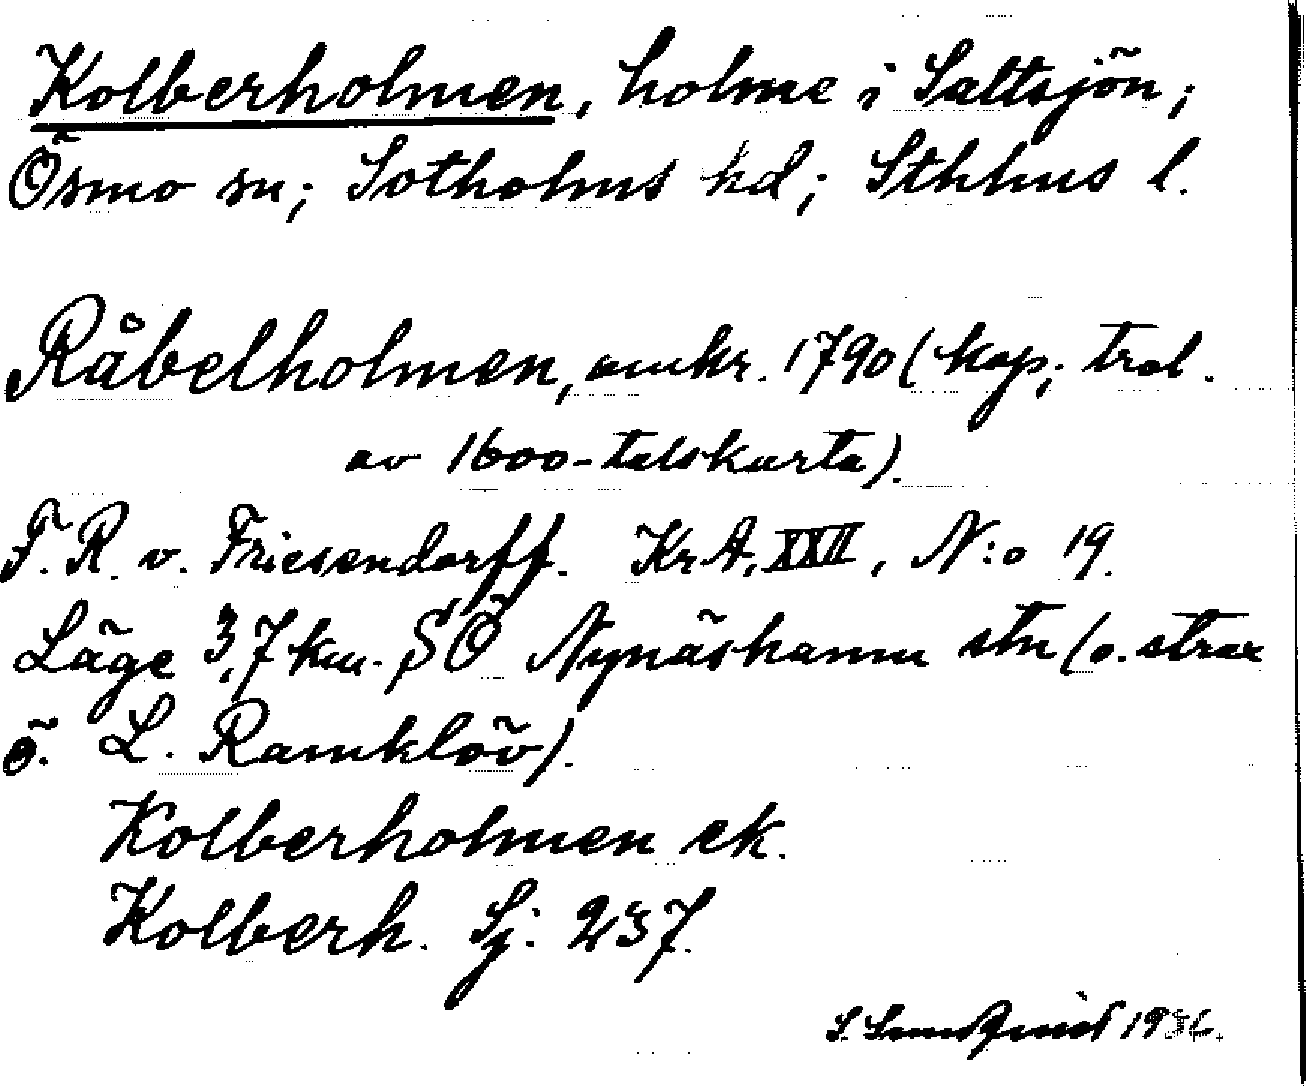 Kolberholmen, holme i Saltsjön;
Ösmo sn; Sotholms hd; Sthlms l.
Råbelholmen, omkr. 1790 (kop; trol.
av 1600-talskarta).
F. R. v. Friesendorff. KrA, XXII, N:o 19.
Läge 3,7 km. SÖ Nynäshamn stn (o. strax
ö. L. Ramklöv).
Kolberholmen ek.
Kolberh. Sj. 237.
S. 19